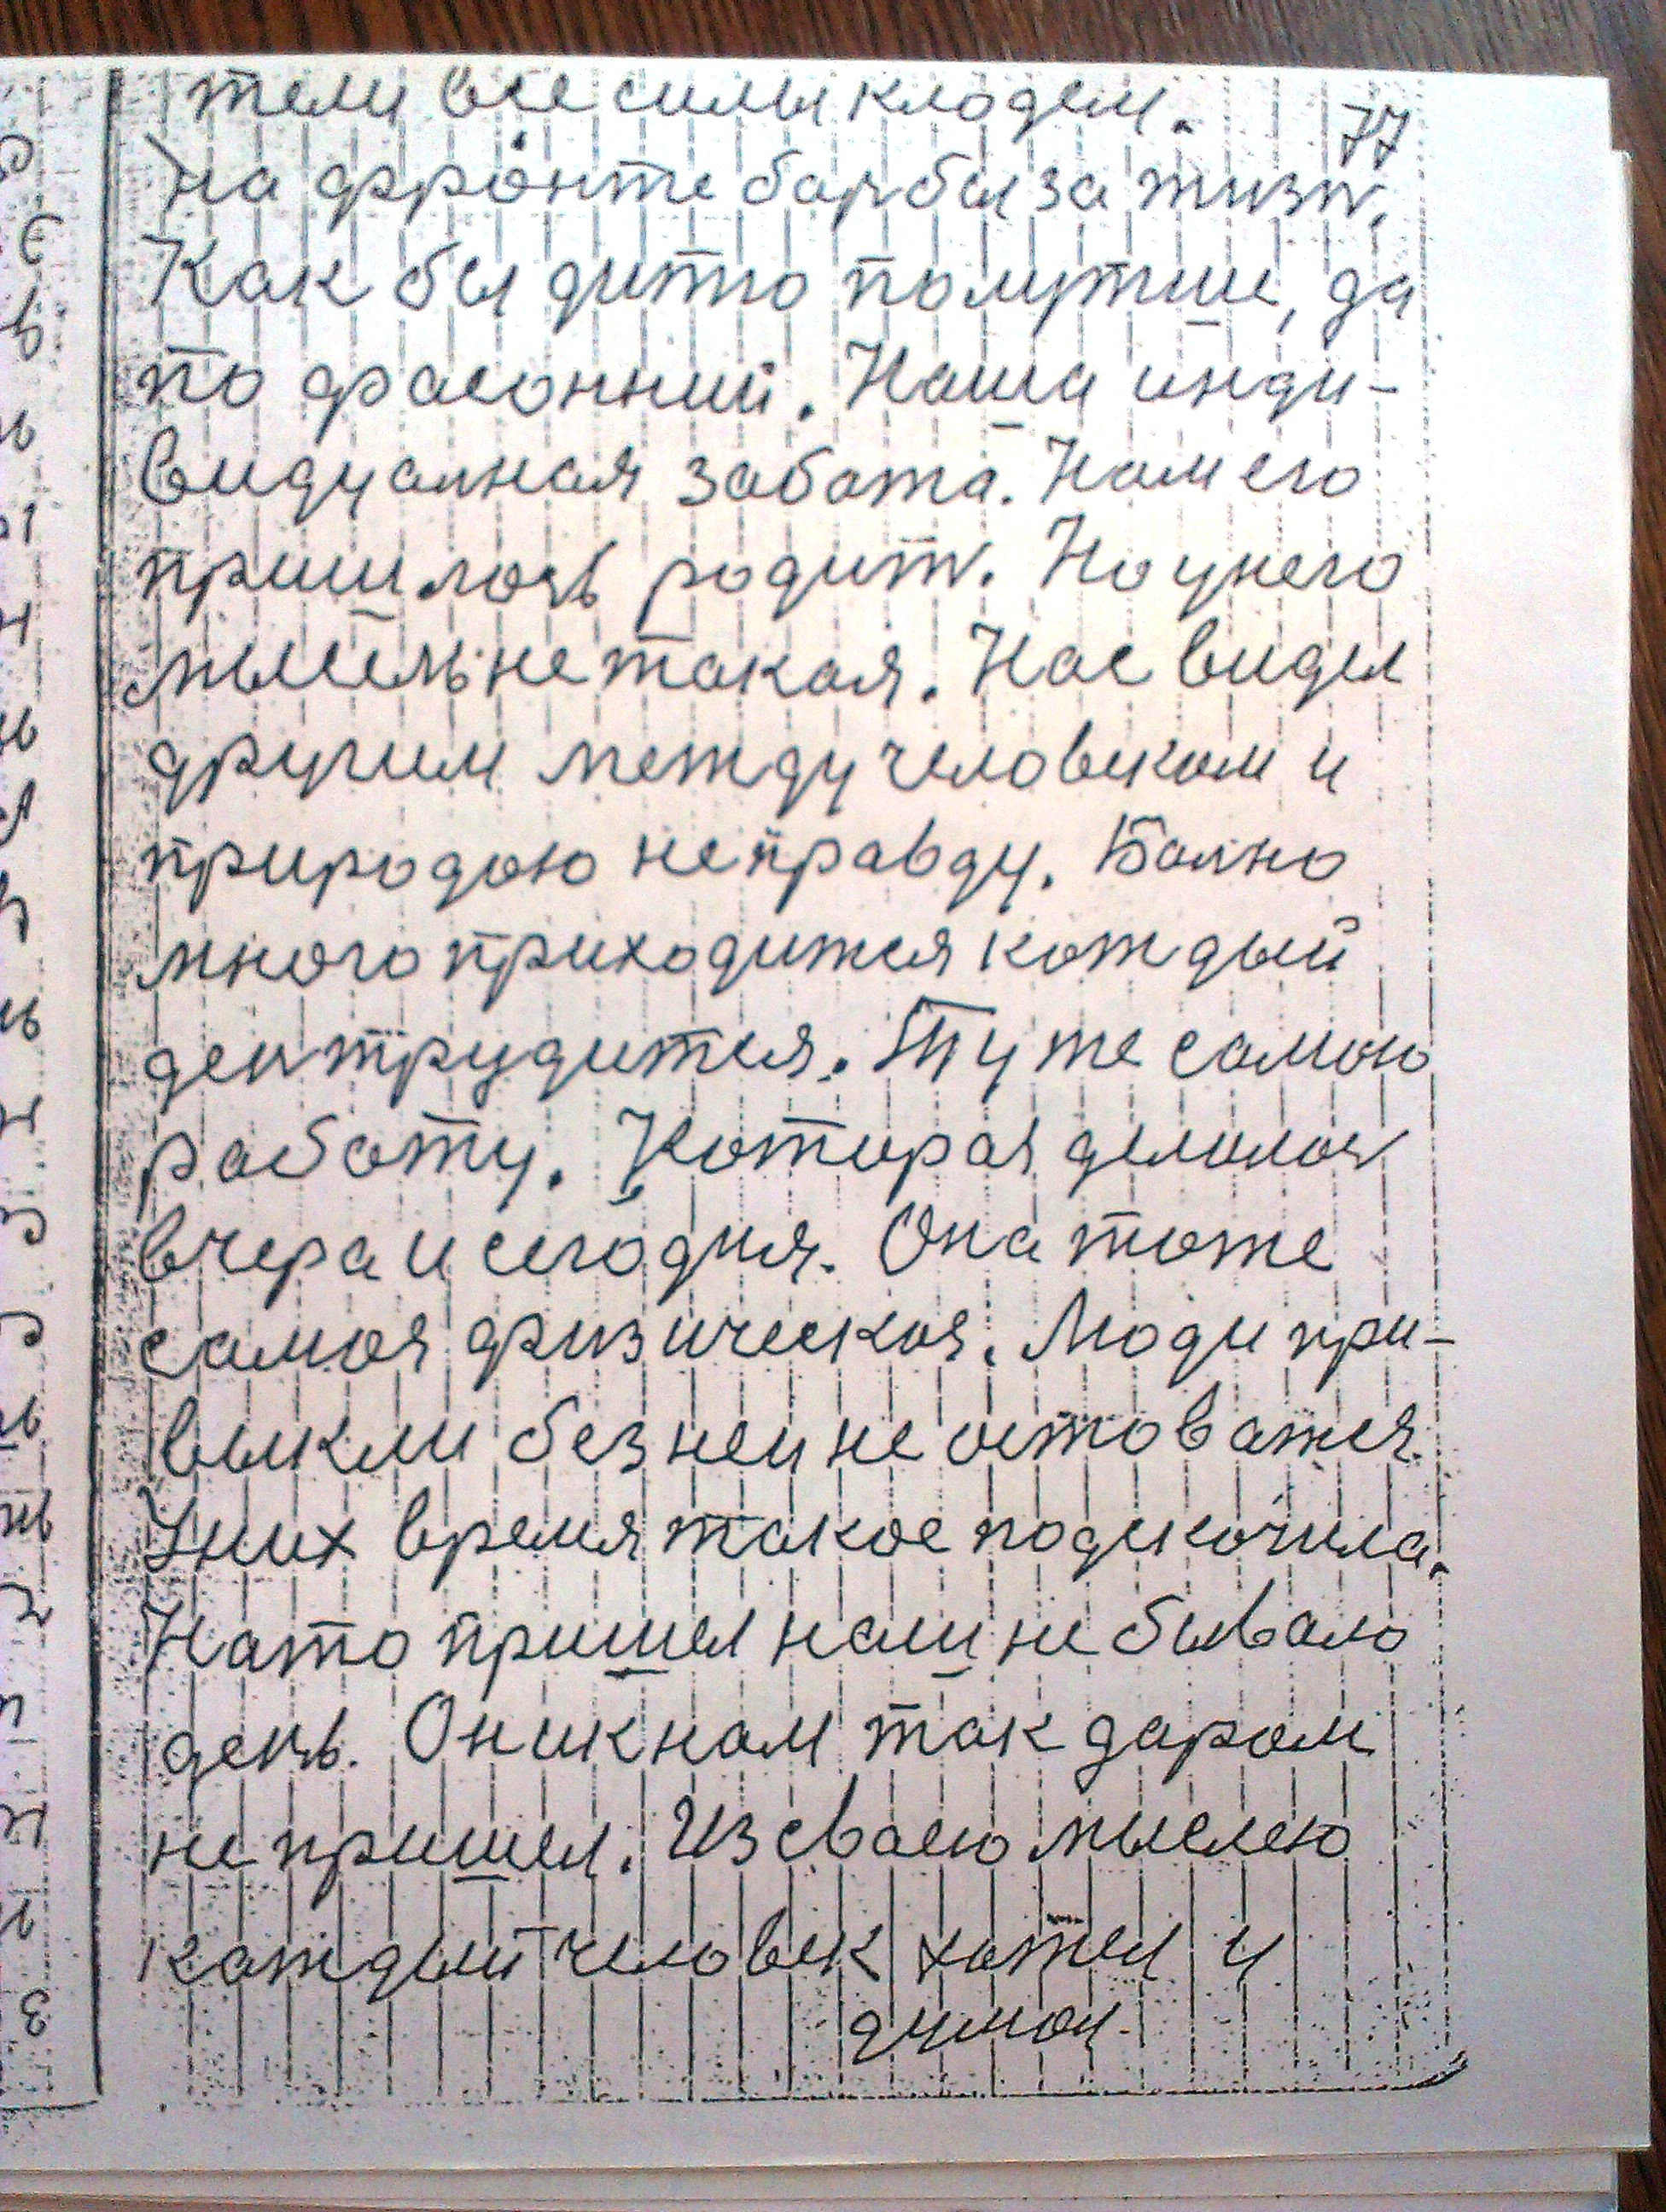 тели все силы кладем. 77
на фронте барбы за жизн.
Как бы дитто полутше, да
по фасонний. Наша инди-
видуалная забота. Нам его
пришлось родит. Но у него
мысель не такая. Нас видел
другим между человеком и
природою неправду. Болно
много приходится каждый
ден трудится. Ту же самою
работу. Котирая делалас
вчера и сегодня. Она тоже
самая физическая. Люди при-
выкли без неи не оставатся.
У них время такое подскочила.
На то пришел наш не бывало
день. Он и к нам так даром
не пришел. Из сваею мыслею
каждый человек хотел и
думал.